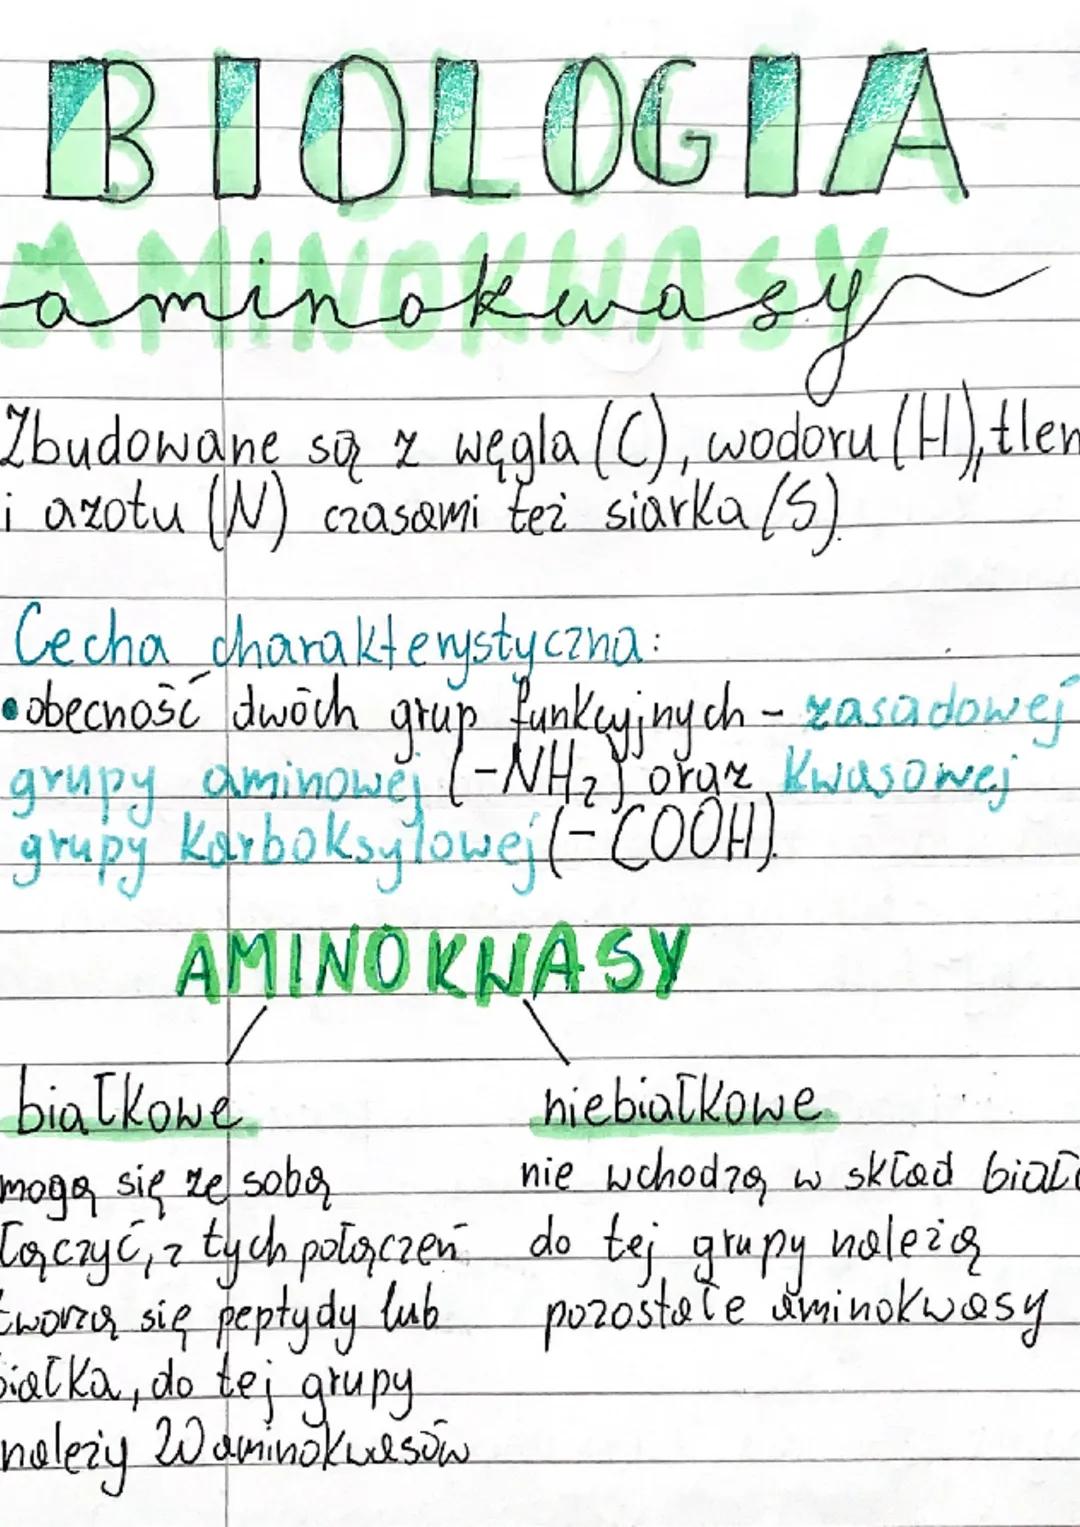 BIOLOGIA
AMINOKWASY
aminokwasy
Zbudowane są z węgla (C), wodoru (H), tlen
i azotu (N) czasami też siarka (S).
Cecha charakterystyczna:
• obecność dwóch grup funkcyjnych - zasadowej
grupy aminowej (-NH₂) oraz kwasowej
grupy karboksylowej (-COOH).
AMINOKWASY
białkowe niebiałkowe
mogą się ze sobą nie wchodzą w skład biał
łączyć, z tych połączeń do tej grupy należą
tworzą się peptydy lub pozostałe aminokwasy
białka, do tej grupy
należy 20 aminokwasów